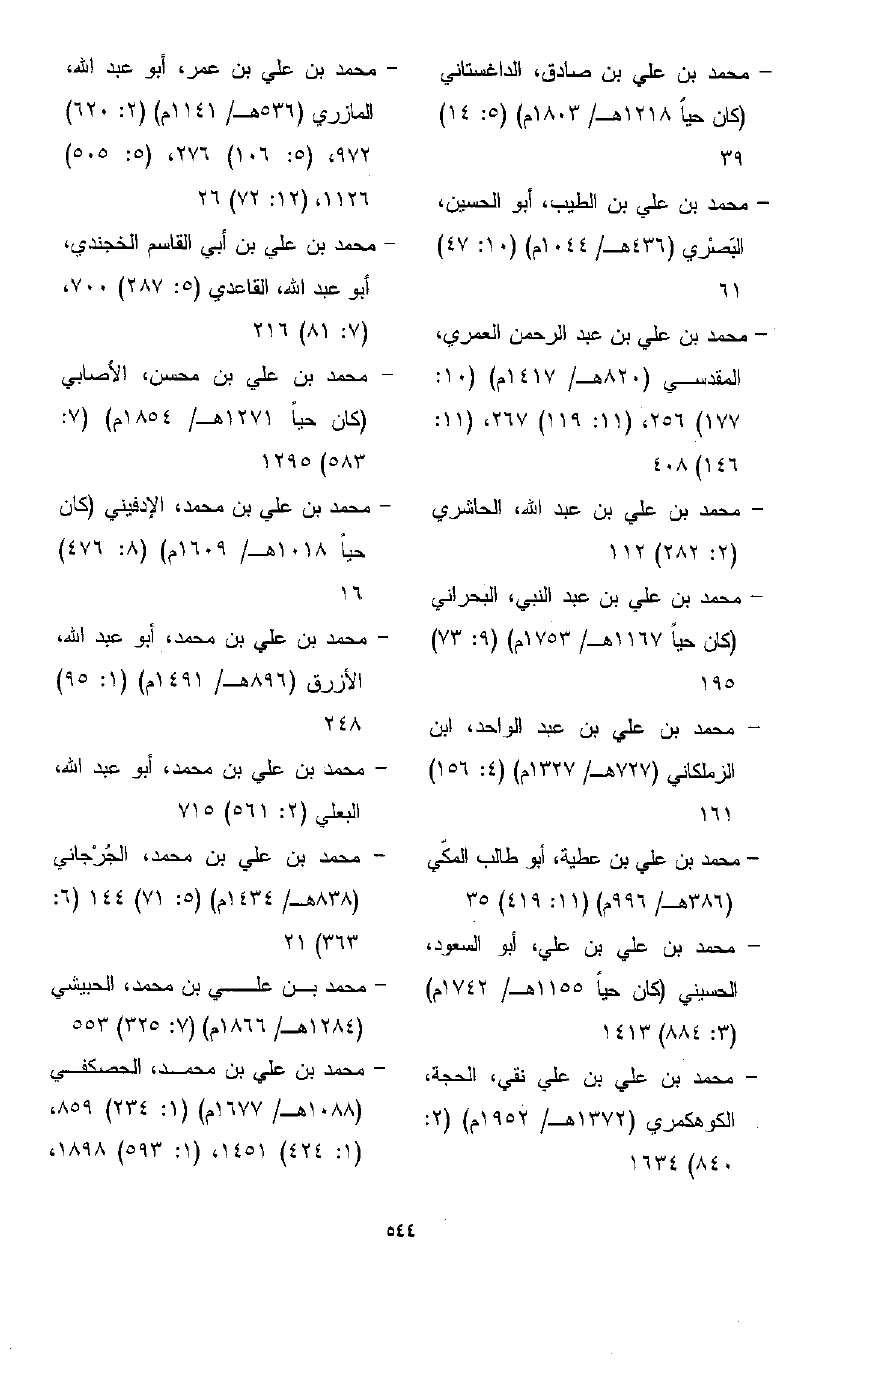 - محمد بن علي بن صادق، الداغستاني
(كان حياً ١٢١٨هـ/ ١٨٠٣م) (٥: ١٤)
٣٩
- محمد بن علي بن الطيب، أبو الحسين،
البَصْري (٤٣٦هـ/ ١٠٤٤م) (١٠: ٤٧)
٦١
- محمد بن علي بن عبد الرحمن العمري،
المقدسي (٨٢٠هـ/ ١٤١٧م) (١٠:
١٧٧) ٢٥٦، (١١: ١١٩) ٢٦٧، (١١:
١٤٦) ٤٠٨
- محمد بن علي بن عبد الله، الحاشري
(٢: ٢٨٢) ١١٢
- محمد بن علي بن عبد النبي، البحراني
(كان حياً ١١٦٧هـ/ ١٧٥٣م) (٩: ٧٣)
١٩٥
- محمد بن علي بن عبد الواحد، ابن
الزملكاني (٧٢٧هـ/ ١٣٢٧م) (٤: ١٥٦)
١٦١
- محمد بن علي بن عطية، أبو طالب المكّي
(٣٨٦هـ/ ٩٩٦م) (١١: ٤١٩) ٣٥
- محمد بن علي بن علي، أبو السعود،
الحسيني (كان حياً ١١٥٥هـ/ ١٧٤٢م)
(٣: ٨٨٤) ١٤١٣
- محمد بن علي بن علي نقي، الحجة،
الكوهكمري (١٣٧٢هـ/ ١٩٥٢م) (٢:
٨٤٠) ١٦٣٤
- محمد بن علي بن عمر، أبو عبد الله،
المازري (٥٣٦هـ/ ١١٤١م) (٢: ٦٢٠)
٩٧٢، (٥: ١٠٦) ٢٧٦، (٥: ٥٠٥)
١١٢٦، (١٢: ٧٢) ٢٦
- محمد بن علي بن أبي القاسم الخجندي،
أبو عبد الله، القاعدي (٥: ٢٨٧) ٧٠٠،
(٧: ٨١) ٢١٦
- محمد بن علي بن محسن، الأصابي
(كان حياً ١٢٧١هـ/ ١٨٥٤م) (٧:
٥٨٣) ١٢٩٥
- محمد بن علي بن محمد، الإدفيني (كان
حياً ١٠١٨هـ/ ١٦٠٩م) (٨: ٤٧٦)
١٦
- محمد بن علي بن محمد، أبو عبد الله،
الأزرق (٨٩٦هـ/ ١٤٩١م) (١: ٩٥)
٢٤٨
- محمد بن علي بن محمد، أبو عبد الله،
البعلي (٢: ٥٦١) ٧١٥
- محمد بن علي بن محمد، الجُرْجاني
(٨٣٨هـ/ ١٤٣٤م) (٥: ٧١) ١٤٤ (٦:
٣٦٣) ٢١
- محمد بن علي بن محمد، الحبيشي
(١٢٨٤هـ/ ١٨٦٦م) (٧: ٣٢٥) ٥٥٣
- محمد بن علي بن محمد، الحصكفي
(١٠٨٨هـ/ ١٦٧٧م) (١: ٢٣٤) ٨٥٩،
(١: ٤٢٤) ١٤٥١، (١: ٥٩٣) ١٨٩٨،
٥٤٤